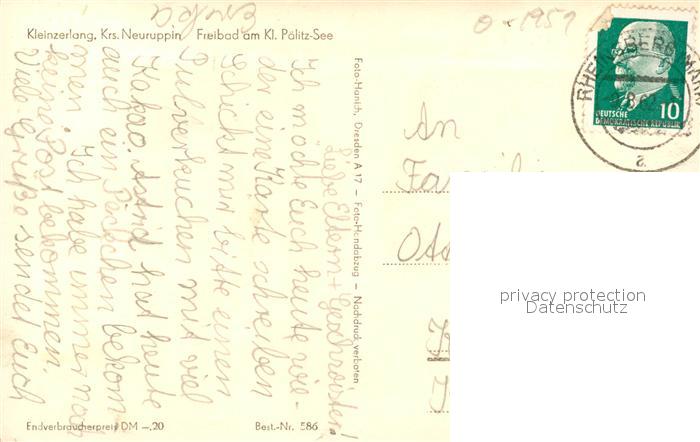 Kleinzerlang, Krs. Neuruppin Freibad am Kl. Pälitz-See
Liebe Eltern + Geschwister!
Ich möchte Euch heute wie-
der eine Karte schreiben
Schickt mir bitte einen
Pulverkuchen mit viel
Kakao. Astrid hat heute
auch ein Päckchen bekom-
men. Ich habe immer noch
keine Post bekommen.
Viele Grüße sendet Euch
Erika
Foto-Hanich, Dresden A 17 — Foto-Handabzug — Nachdruck verboten
Endverbraucherpreis DM —,20 Best.-Nr. 586
0 - 1959
RHEINSBERG (MARK)
a
10
DEUTSCHE
DEMOKRATISCHE REPUBLIK
An
Familie
privacy protection
Datenschutz